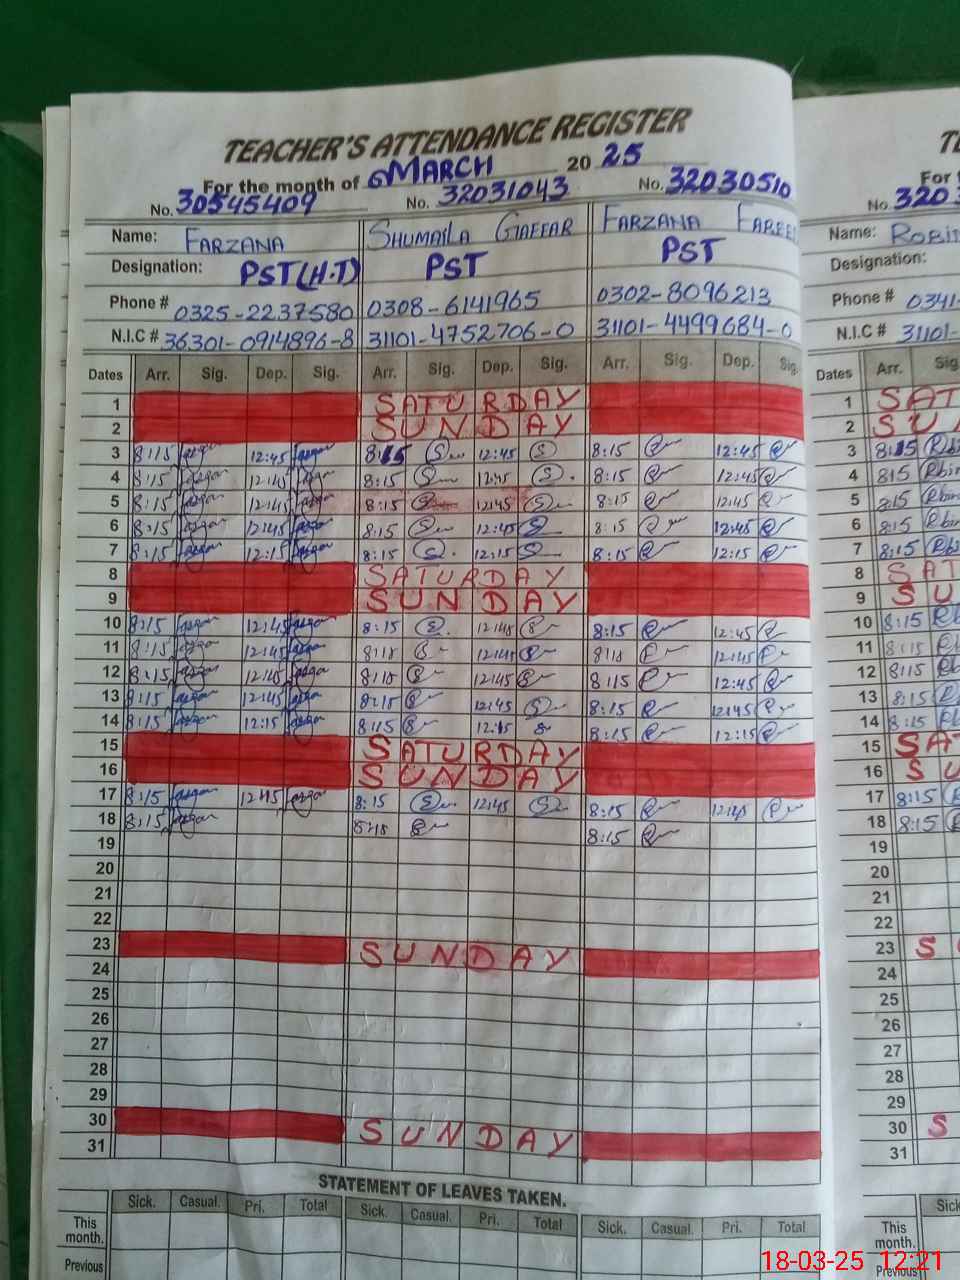 TEACHER'S ATTENDANCE REGISTER
For the month of MARCH 2025
No. 30545409 No. 32031043 No. 32030510
Name: FARZANA SHUMAILA GAFFAR FARZANA
Designation: PST(H.T) PST PST
Phone # 0325-2237580 0308-6141965 0302-8096213
N.I.C # 36301-0914896-8 31101-4752706-0 31101-4499684-0
Dates Arr. Sig. Dep. Sig. Arr. Sig. Dep. Sig. Arr. Sig. Dep. Sig.
1 SATURDAY
2 SUNDAY
3 8:15 12:45 8:15 12:45 8:15 12:45
4 8:15 12:45 8:15 12:45 8:15 12:45
5 8:15 12:45 8:15 12:45 8:15 12:45
6 8:15 12:45 8:15 12:45 8:15 12:45
7 8:15 12:15 8:15 12:15 8:15 12:15
8 SATURDAY
9 SUNDAY
10 8:15 12:45 8:15 12:45 8:15 12:45
11 8:15 12:45 8:15 12:45 8:15 12:45
12 8:15 12:45 8:15 12:45 8:15 12:45
13 8:15 12:45 8:15 12:45 8:15 12:45
14 8:15 12:15 8:15 12:15 8:15 12:15
15 SATURDAY
16 SUNDAY
17 8:15 12:45 8:15 12:45 8:15 12:45
18 8:15 8:15 8:15
19
20
21
22
23 SUNDAY
24
25
26
27
28
29
30 SUNDAY
31
STATEMENT OF LEAVES TAKEN.
Sick. Casual. Pri. Total Sick. Casual. Pri. Total Sick. Casual. Pri. Total
This
month.
Previous
No.
Name:
Designation:
Phone # 0341-
N.I.C # 31101-
Dates Arr.
1
2
3 8:15
4 8:15
5 8:15
6 8:15
7 8:15
8
9
10 8:15
11 8:15
12 8:15
13 8:15
14 8:15
15
16
17 8:15
18 8:15
19
20
21
22
23
24
25
26
27
28
29
30
31
This
month.
Previous
18-03-25 12:21